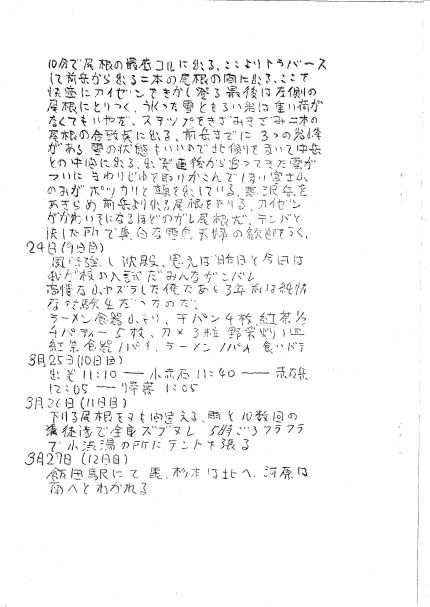 10分で尾根の最低コルに出る、ここよりトラバース
して前岳から出る二本の尾根の間に出る、ここで
快適にアイゼンをきかし登る最後は左側の
尾根にとりつく、うくった雪ともろい岩は重い荷が
なくてもいやだ、ステップをきざみきざみ二本の
尾根の合致点に出る、前岳までに 3つの岩峰
がある 雪の状態もいいので北側をまいて中岳
との中間に出る、出発直後から追ってきた雲が
ついに まわりじゅを取りかこんでしまい富士山
のみがポッカリと顔を出している、悪沢岳を
あきらめ前岳より出る尾根を下りる、アイゼン
がかわいそになるほどのガレ尾根だ、テンバと
決した所で真白な雷鳥夫婦の歓迎をうく、
24日(9日目)
風雪強し沈殿、思えば昨日と今日は
我が校の入試だみんながこバレ
高慢な小ヤズラした俺だあと3年前は純情
な受験生だったのだ、
ラーメン食器 チパン4枚、紅茶
チパティー5枚、カメ3粒 野菜炒1皿
紅茶食器1パイ、ラーメン1パイ 食いすぎ
3月25日(10日目)
出発11:10 ― 小赤石11:40 ― 赤石
12:05 ― 帰幕 1:05
3月26日(11日目)
下りる尾根をまちがえる、雨と10数回の
渡徒渉で全身ズブヌレ 5時ごろフラフラ
で小渋湯の所にテントを張る
3月27日(12日目)
飯田駅にて 黒、杉本は北へ、河原は
南へとわかれる